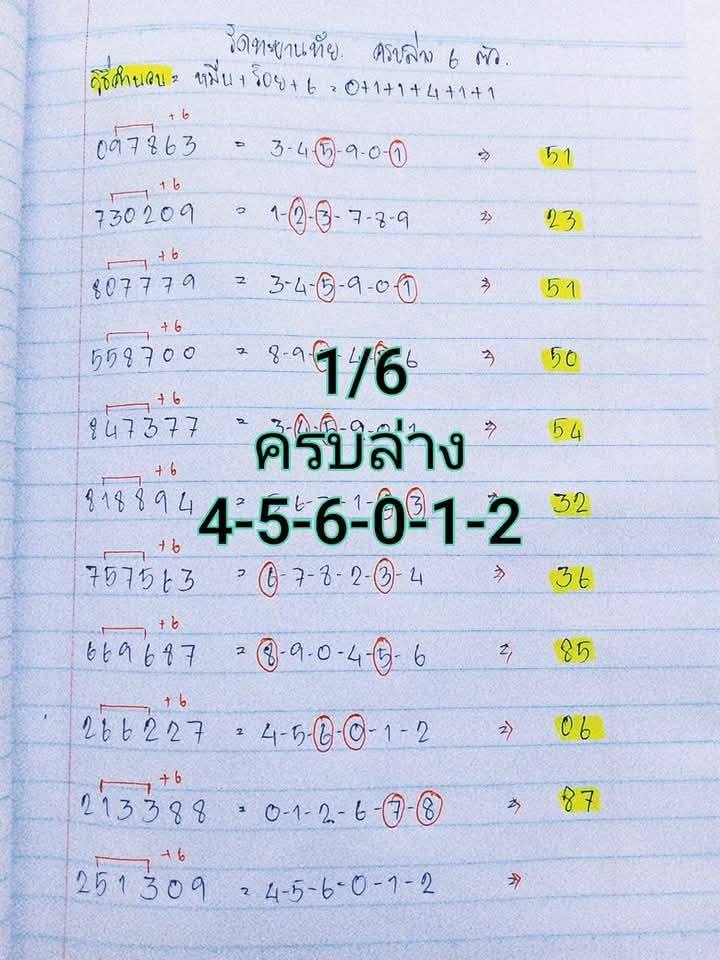 ครบล่าง 6 ตัว.
วิธีคำนวน = หมื่น + ร้อย + 6 = 0+1+1+4+1+1
+6
097863 = 3-4-5-9-0-1 ⇒ 51
+6
730209 = 1-2-3-7-8-9 ⇒ 23
+6
807779 = 3-4-5-9-0-1 ⇒ 51
+6
558700 = 8-9- -4- -6 ⇒ 50
1/6
+6
847377 = 3-4-5-9-0-1 ⇒ 54
ครบล่าง
+6
818894 = 3 ⇒ 32
4-5-6-0-1-2
+6
757563 = 6-7-8-2-3-4 ⇒ 36
+6
669687 = 8-9-0-4-5-6 ⇒ 85
+6
266227 = 4-5-6-0-1-2 ⇒ 06
+6
213388 = 0-1-2-6-7-8 ⇒ 87
+6
251309 = 4-5-6-0-1-2 ⇒